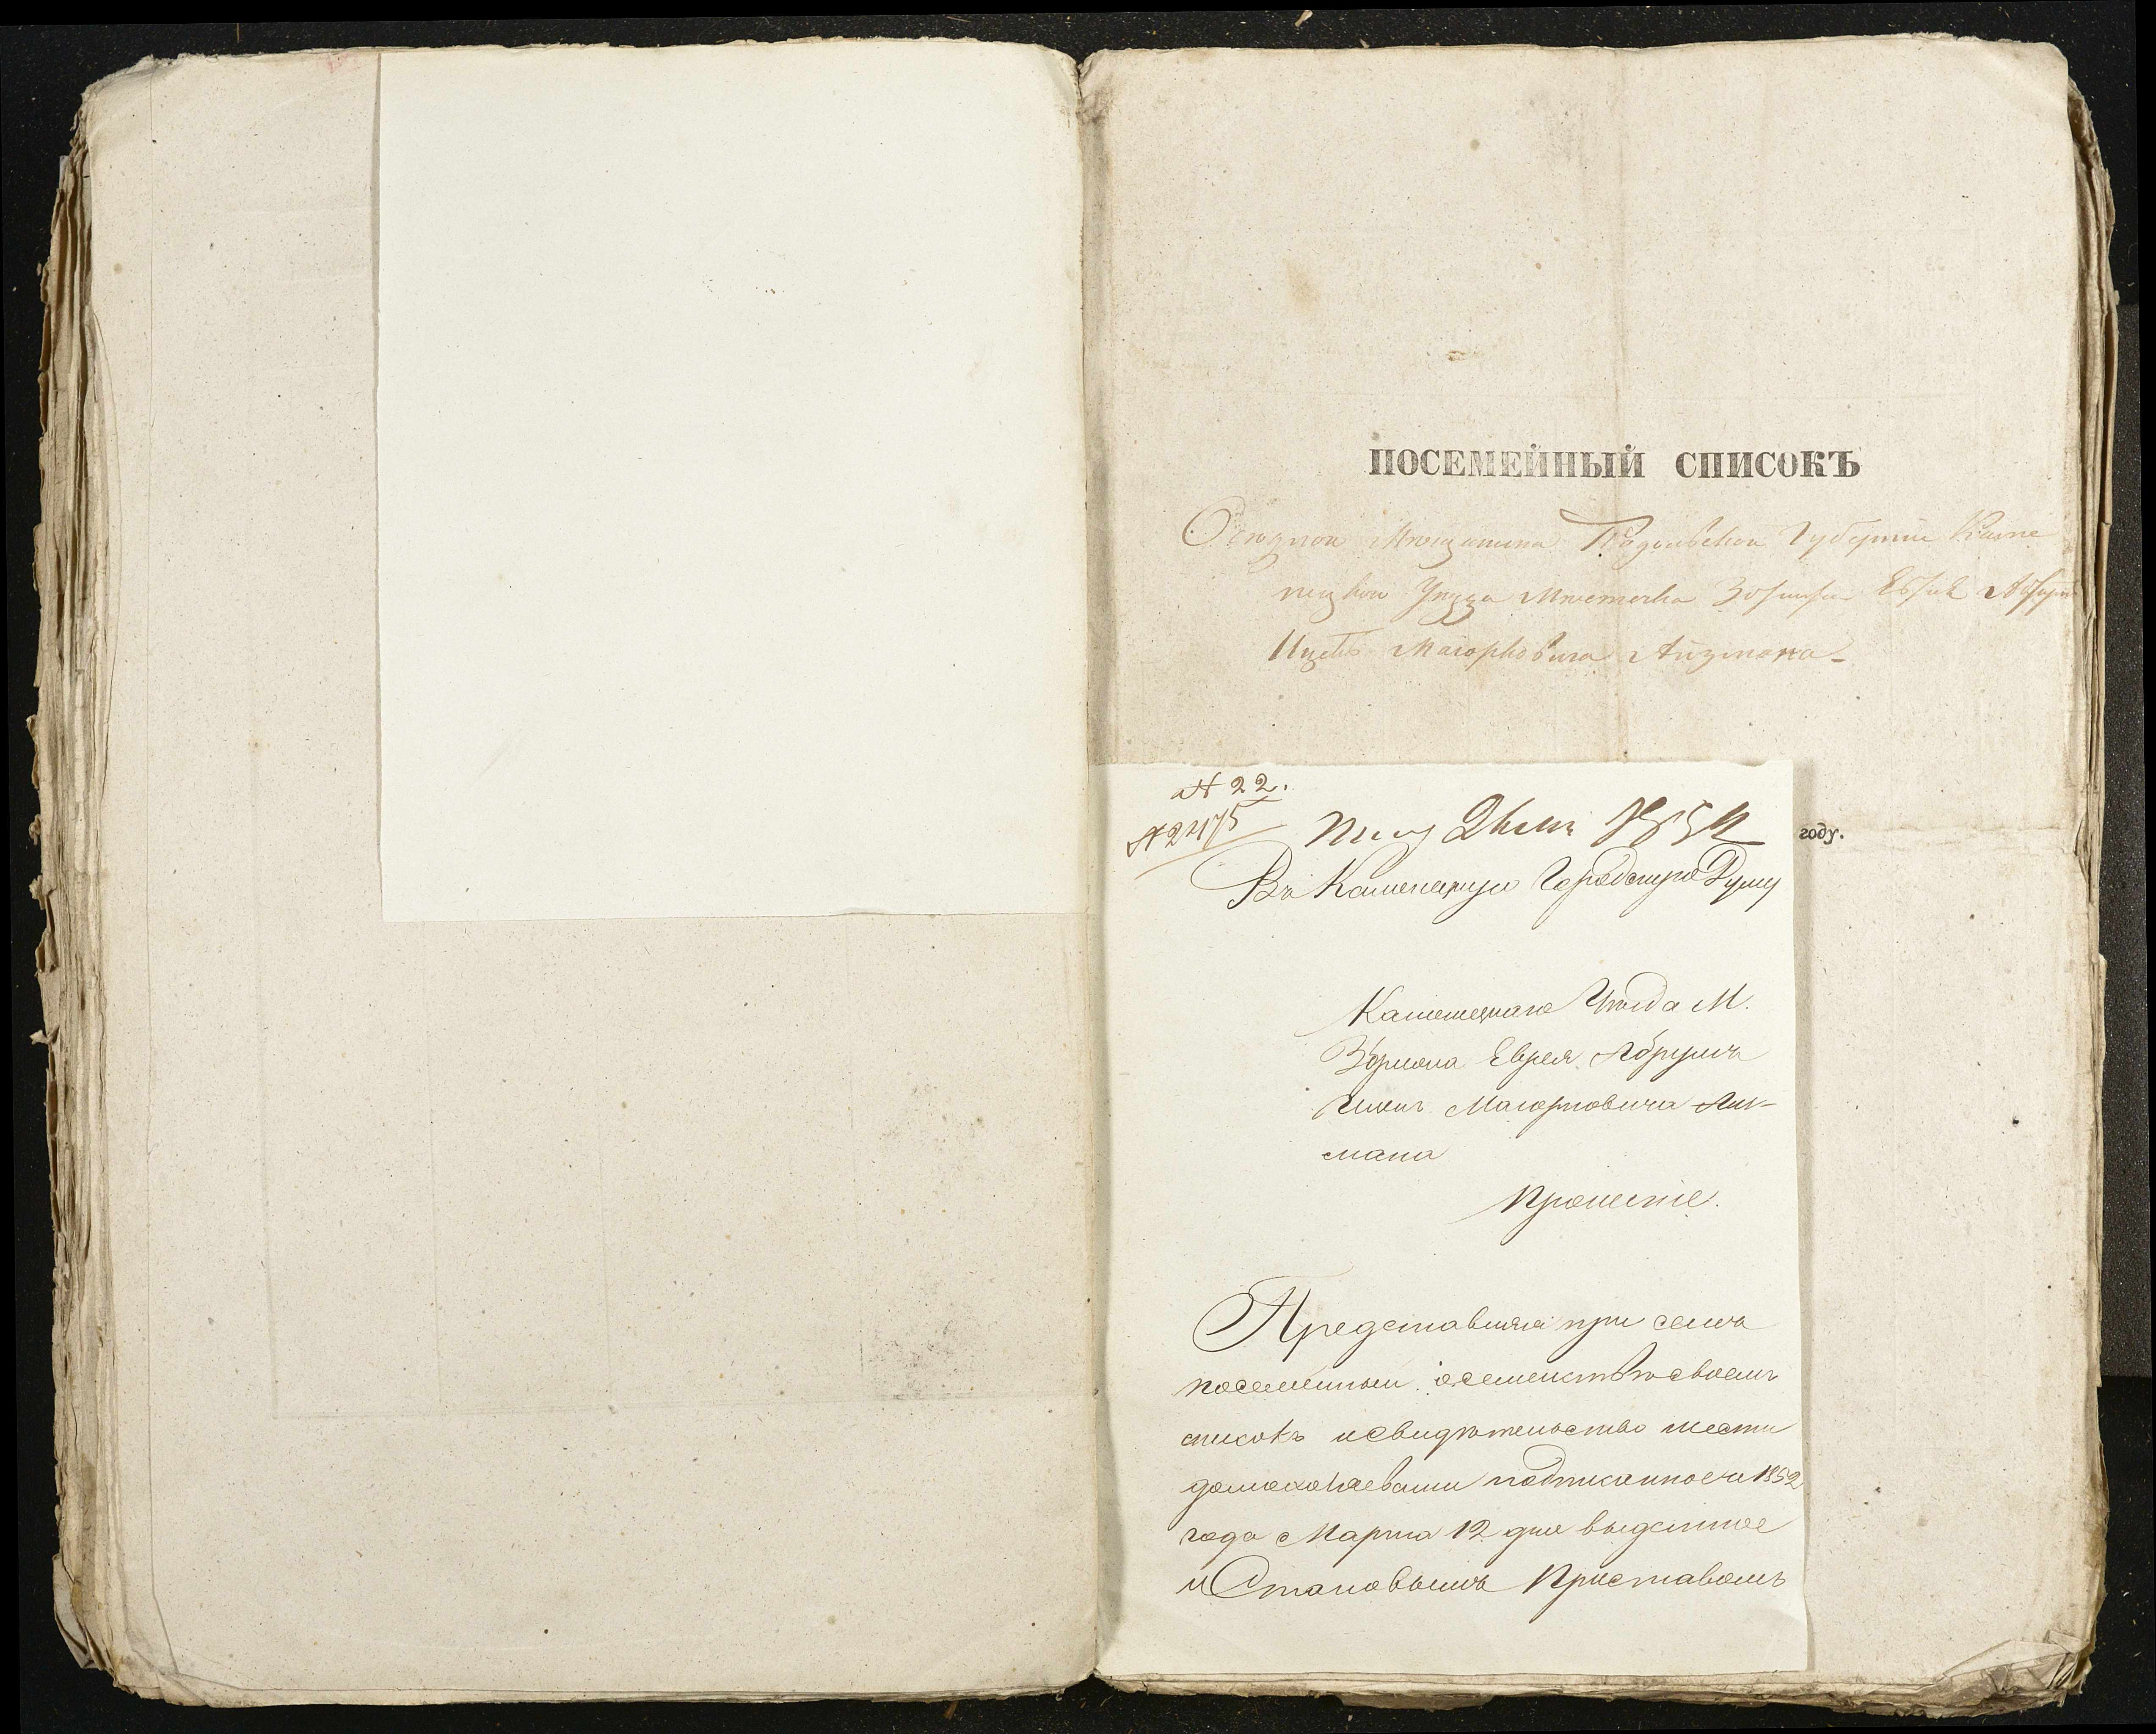 ПОСЕМЕЙНЫЙ СПИСОКЪ
Оседлои Мѣщанина Подольской Губерніи Каме
нецкои Уѣзда Мѣстечка Збрижа Еврея Абрум
Ицекъ Маіорковича Айзмана
№ 22.
№ 2475
году.
Въ Каменецкую Городскую Думу
Каменецкаго Уѣзда М.
Збрижа Еврея Абрумъ
Ицикъ Маіорковича
мана
Прошеніе.
Представляя при семъ
посемейный о семействѣ своемъ
списокъ и свидѣтельство шести
домохозяевами подписанное 1852
года Марта 12 дня выданное
и Становымъ Приставомъ